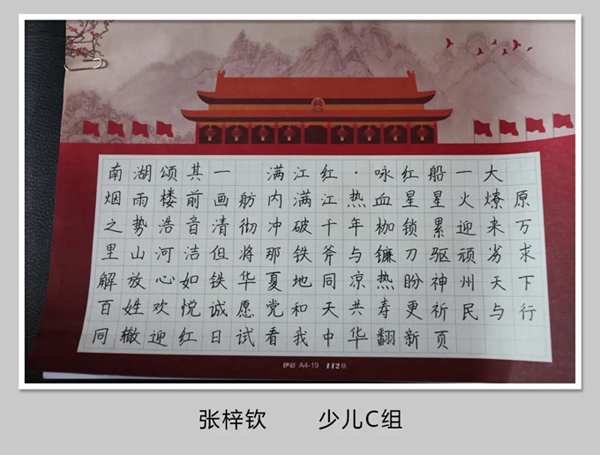 南湖颂其一 满江红·咏红船一大
烟雨楼前画舫内满江热血星星火燎原
之势浩音清彻冲破千年枷锁累迎来万
里山河洁但将那铁斧与镰刀驱顽劣求
解放心如铁华夏地同凉热盼神州天下
百姓欢悦诚愿党和天共寿更祈民与行
同辙迎红日试看我中华翻新页
A4-19 112格
张梓钦 少儿C组